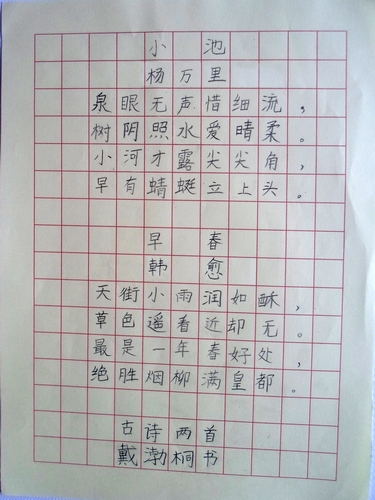 小池
杨万里
泉眼无声惜细流，
树阴照水爱晴柔。
小河才露尖尖角，
早有蜻蜓立上头。
早春
韩愈
天街小雨润如酥，
草色遥看近却无。
最是一年春好处，
绝胜烟柳满皇都。
古诗两首
戴渤桐书